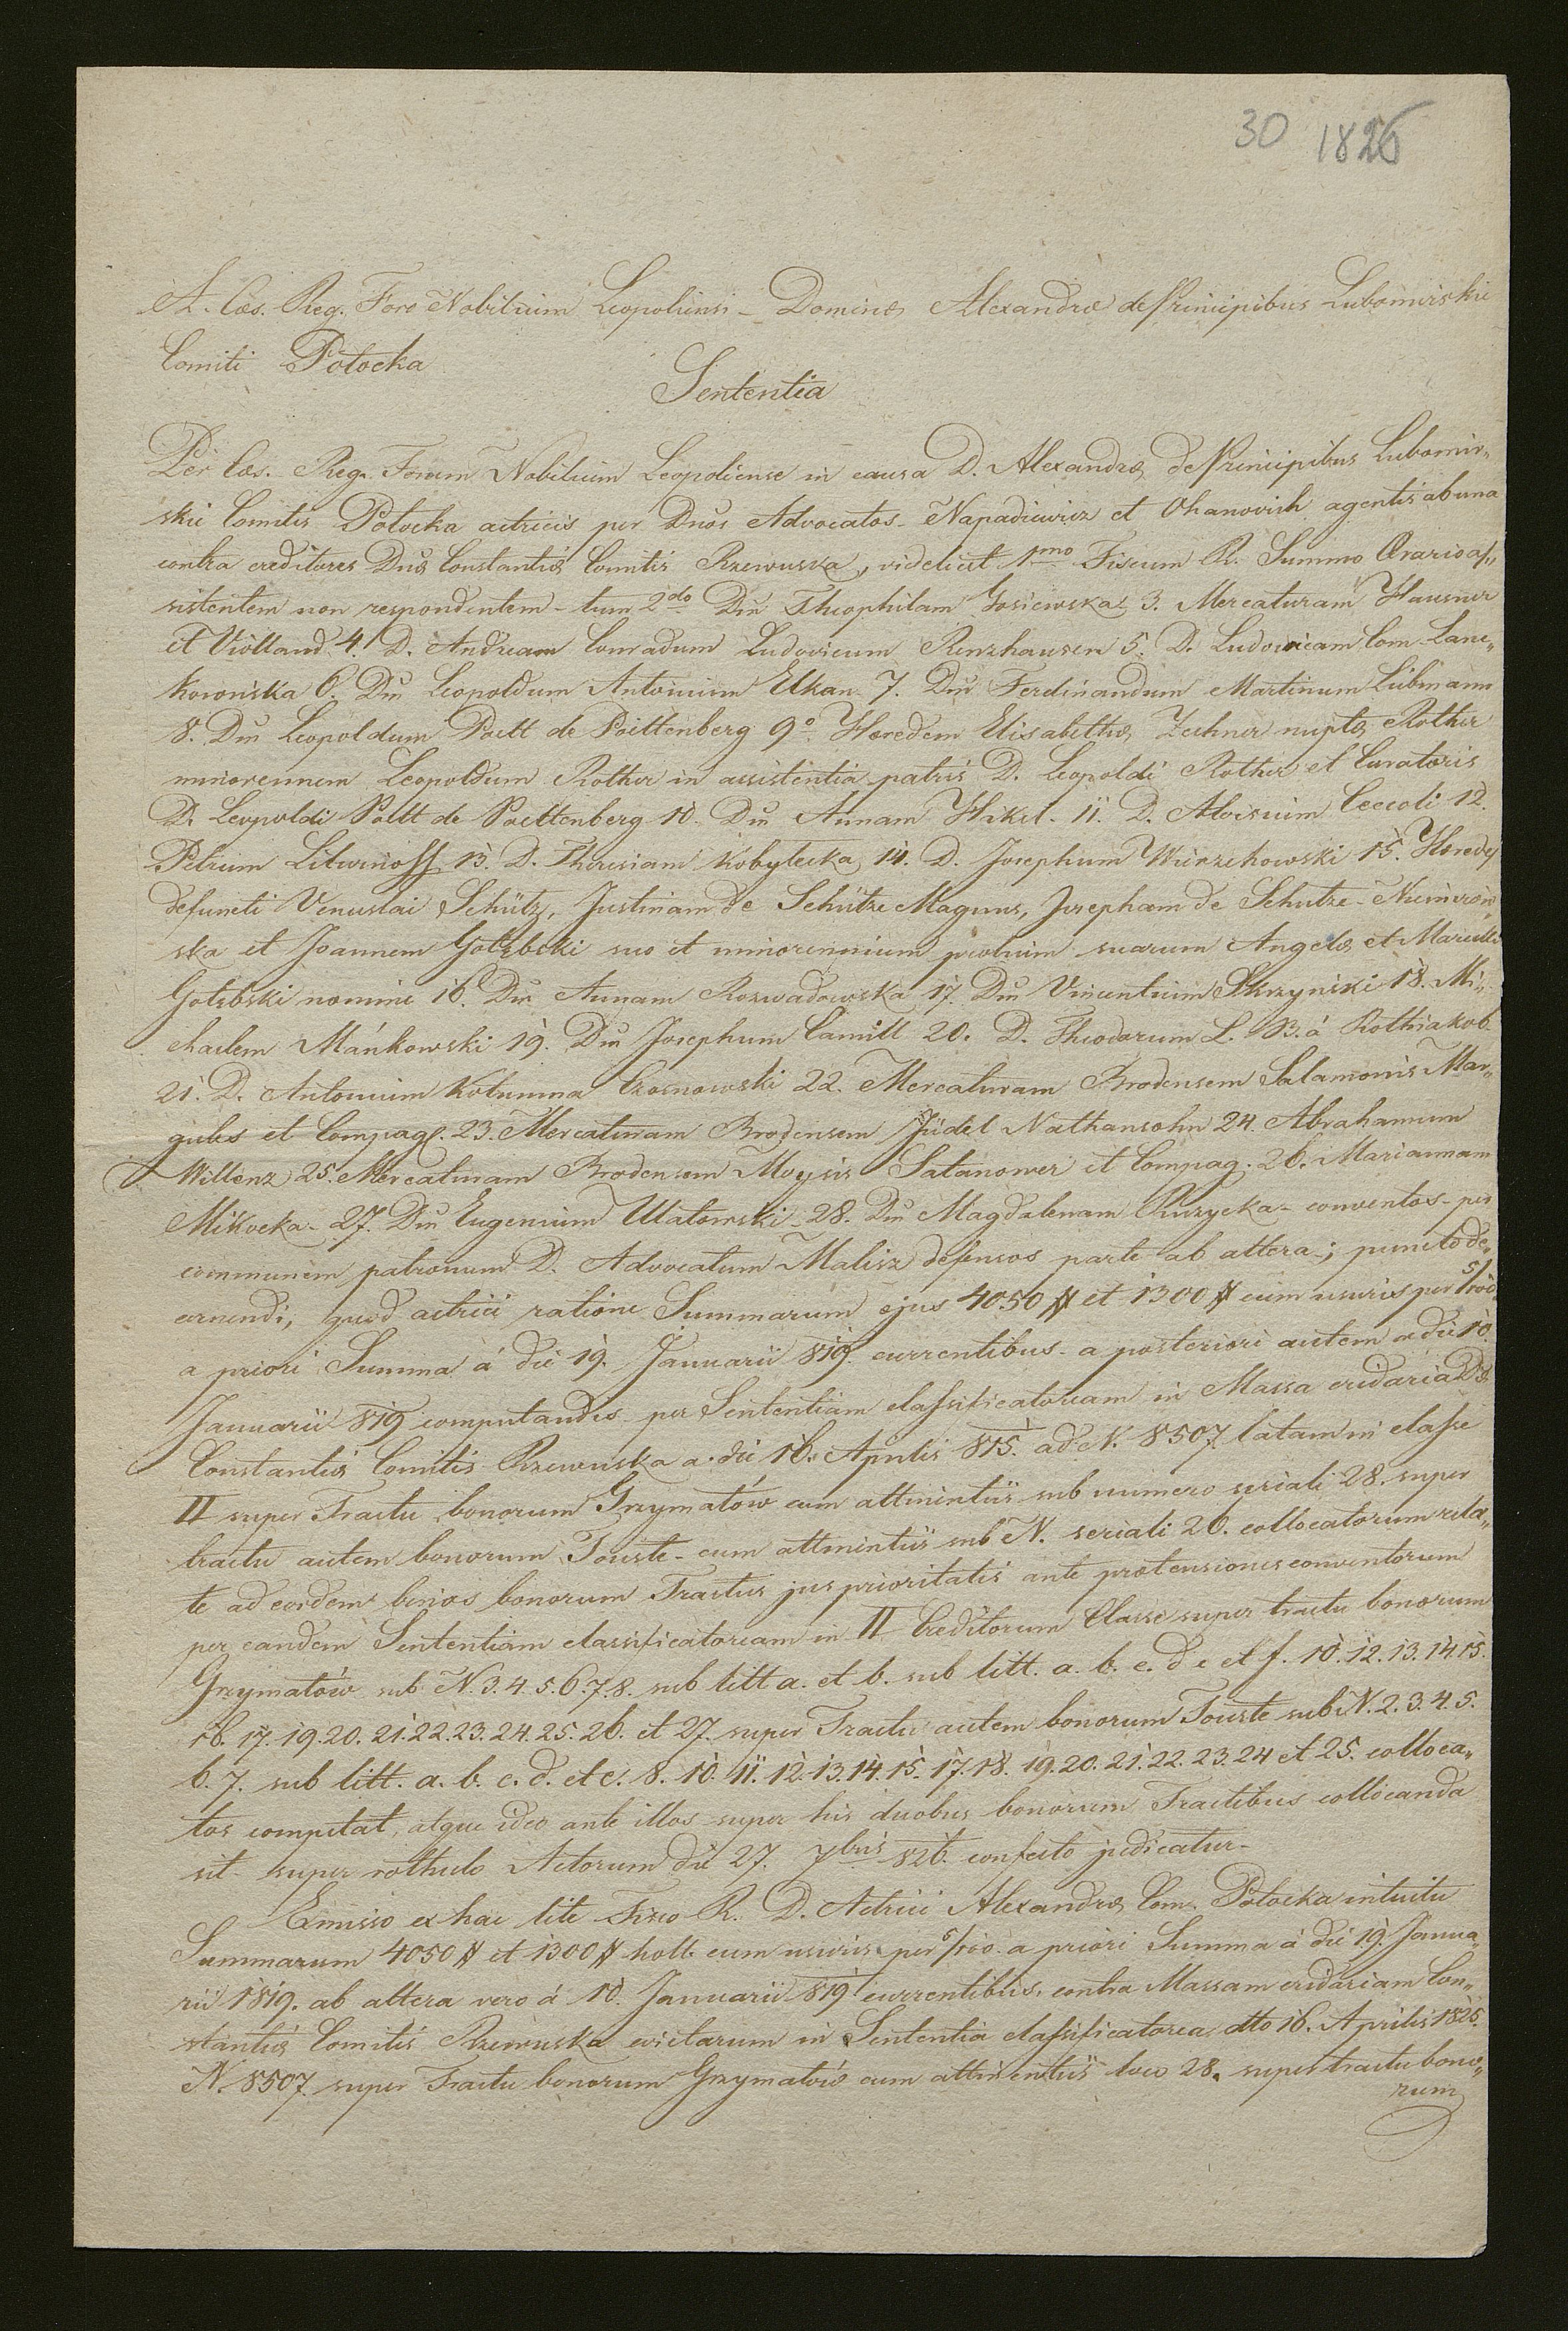 30 1826
A. Cæs. Reg. Foro Nobilium Leopoliensi - Dominæ Alexandræ de Principibus Lubomirskie
Comiti Potocka
Sententia
Per Cæs. Reg. Forum Nobilium Leopoliense in causa D. Alexandræ de Principibus Lubomir„
skie Comitis Potocka actricis per Dnos Advocatos - Napadiewicz et Ohanovich agentis ab una
contra creditores Dnæ Constantiæ Comitis Rzewuska, videlicet 1mo Fiscum R. Summo Ærario as„
sistentem non respondentem - tum 2do Dm Theophilam Gosiewska 3. Mercaturam Hausner
et Violland 4. D. Andream Conradum Ludovicum Renzhausen 5. D. Ludovicam Com. Lanc„
koronska 6. Dm Leopoldum Antonium Elkan 7. Dm Ferdinandum Martinum Libmann
8. Dm Leopoldum Poelt de Poettenberg 9o Hæredem Elisabethæ Zechner nuptæ Rother
minorennem Leopoldum Rother in assistentia patris D. Leopoldi Rother et Curatoris
D. Leopoldi Poltt de Poettenberg 10. Dm Annam Hikel. 11. D. Aloisium Ceccoli 12.
Petrum Litwinoff 13. D. Theresiam Kobylecka 14. D. Josephum Wierzchowski 15. Hæredes
defuncti Venceslai Schütz, Justinam de Schütze Magnus, Josepham de Schutze - Niemirow„
ska et Joannem Gołębski suo et minorennium prolium suarum Angelæ et Marcelli
Gołębski nomine 16. Dm Annam Rozwadowska 17. Dm Vincentium Skrzynski 18. Mi„
chaelem Mańkowski 19. Dm Josephum Camill 20. D. Theodorum L. B. á Rothiakob
21. D. Antonium Kolumna Czosnowski 22. Mercaturam Brodensem Salamonis Mar„
gules et Compag. 23. Mercaturam Brodensem Judel Nathansohn 24. Abrahamum
Willenz 25. Mercaturam Brodensem Moysis Satanower et Compag. 26. Mariannam
Mikocka - 27. Dm Eugenium Ulatowski - 28. Dm Magdalenam Ruzycka - conventos - per
communem patronum D. Advocatum Malisz defensos parte ab altera -; puncto de„
cernendi, quod actrici ratione Summarum ejus 4050 # et 1300 # cum usuris per 5/100
a priori Summa á die 19. Januarii 819. currentibus - a posteriori autem a die 10.
Januarii 819 computandis per Sententiam classificatoriam in Massa cridaria Dnæ
Constantiæ Comitis Rzewuska a. die 16. Aprilis 815. ad N. 8507 latam in classe
II super Tractu bonorum Grzymałów cum attinentiis sub numero seriali 28. super
tractu autem bonorum Touste - cum attinentiis sub N. seriali 26. collocatorum rela„
te ad eosdem binos bonorum Tractus jus prioritatis ante prætensiones conventorum
per eandem Sententiam classificatoream in II Creditorum Classe super tractu bonorum
Grzymałów sub N. 3. 4. 5. 6. 7. 8. sub litt a. et b. sub litt. a. b. c. d e et f. 10. 12. 13. 14. 15.
16. 17. 19. 20. 21. 22. 23. 24. 25. 26. et 27. super Tractu autem bonorum Touste sub N. 2. 3. 4. 5.
6. 7. sub litt. a. b. c. d. et e. 8. 10. 11. 12. 13. 14. 15. 17. 18. 19. 20. 21. 22. 23. 24 et 25. colloca„
tos competat, atque ideo ante illos super his duobus bonorum Tractibus collocanda
sit super rothulo Actorum die 27. 7bris 826. confecto judicatur -
Emisso ex hac lite Fisco R. D. Actrici Alexandræ Com. Potocka intuitu
Summarum 4050 # et 1300 # holl. cum usuris per 5/100. a priori Summa á die 19. Janua„
rii 1819. ab altera vero á 10. Januarii 819 currentibus, contra Massam cridariam Con„
stantiæ Comitis Rzewuska evictarum in Sententia classificatorea dtto 16. Aprilis 1825.
N. 8507 super Tractu bonorum Grzymałów cum attinentiis loco 28. super tractu bono„
rum